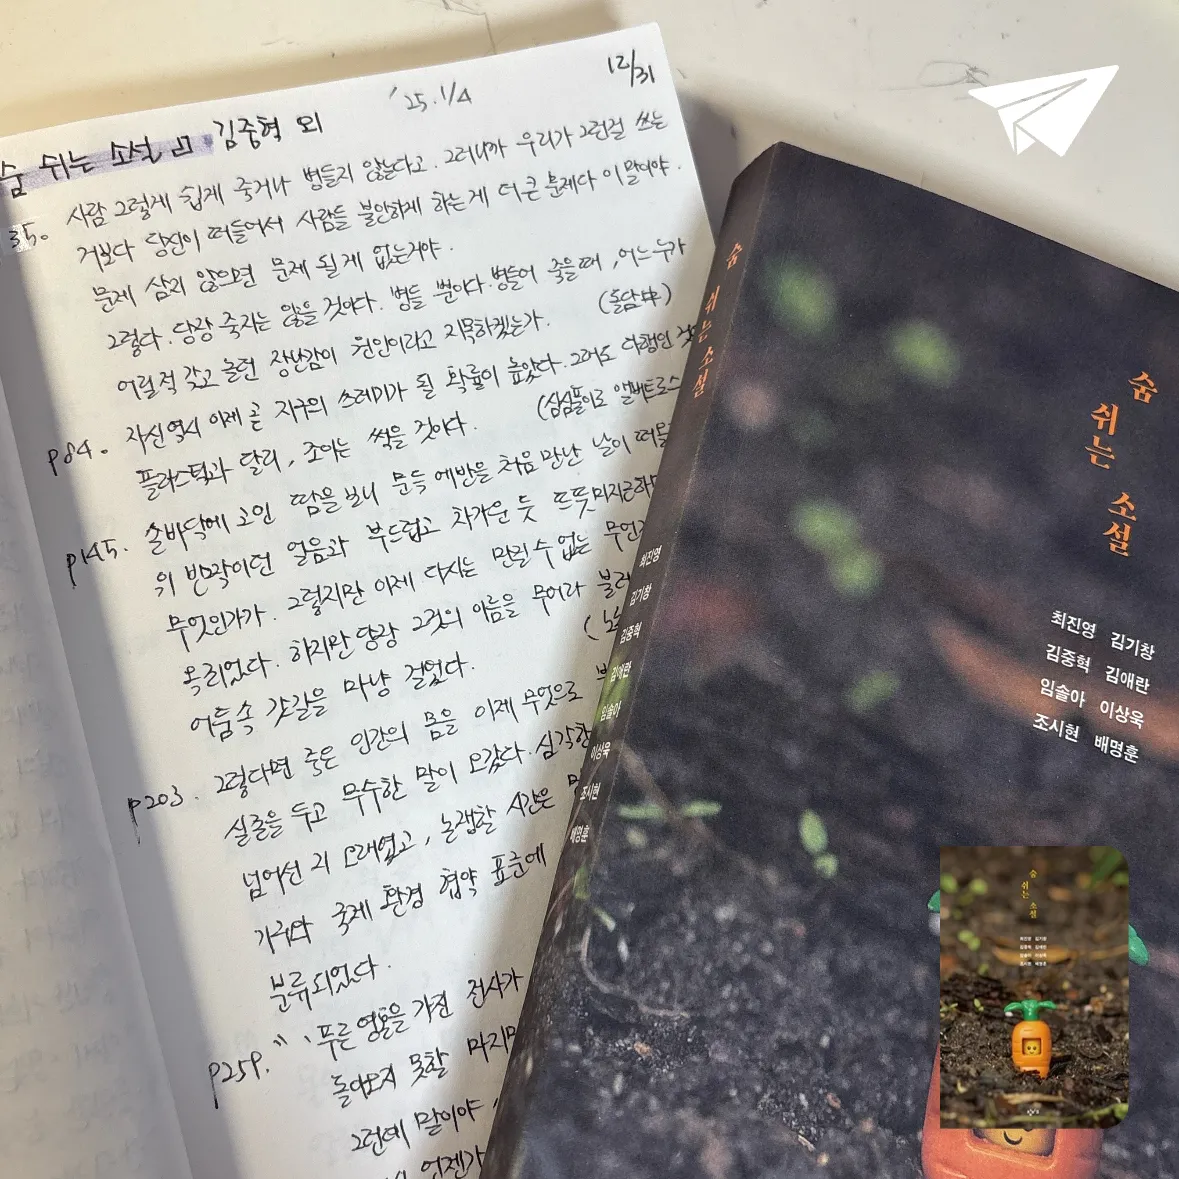 12/31
'25. 1/4
숨 쉬는 소설 김중혁 외
35. 사람 그렇게 쉽게 죽거나 병들지 않는다고. 그러니까 우리가 그런걸 쓰는
거보다 당신이 떠들어서 사람들 불안하게 하는 게 더 큰 문제다 이 말이야.
문제 삼지 않으면 문제 될 게 없는거야.
그렇다. 당장 죽지는 않을 것이다. 병들 뿐이다. 병들어 죽을 때, 어느 누가
어릴 적 갖고 놀던 장난감이 원인이라고 지목하겠는가. (돌담 中)
p84. 자신 역시 이제 곧 지구의 쓰레기가 될 확률이 높았다. 그래도 다행인 것
플라스틱과 달리, 조이는 썩을 것이다. (심심풀이로 앨버트로스
p145. 손바닥에 고인 땀을 보니 문득 에반을 처음 만난 날이 떠올
위 반짝이던 얼음과 부드럽고 차가운 듯 뜨뜻미지근하
무엇인가가. 그렇지만 이제 다시는 만질 수 없는 무언
옥죄었다. 하지만 당장 그것의 이름을 무어라 불러
어둠 속 갓길을 마냥 걸었다. (노
p203. 그렇다면 죽은 인간의 몸을 이제 무엇으로
실존을 두고 무수한 말이 오갔다. 심각한
넘어선 지 오래였고, 논쟁할 시간은
국제 환경 협약 표준에
분류되었다.
p259. " '푸른 영혼을 가진 전사가
돌아오지 못할 마지막
그런데 말이야
언젠가
숨 쉬는 소설
최진영
김기창
김중혁
김애란
임솔아
이상욱
조시현
배명훈
숨
쉬는
소설
최진영 김기창
김중혁 김애란
임솔아 이상욱
조시현 배명훈
숨
쉬는
소설
최진영 김기창
김중혁 김애란
임솔아 이상욱
조시현 배명훈